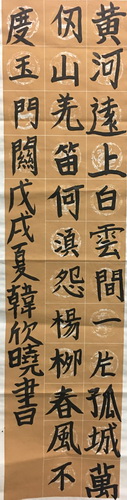 黄河遠上白雲間一片孤城萬
仞山羌笛何湏怨楊柳春風不
度玉門關戊戌夏韓欣曉書